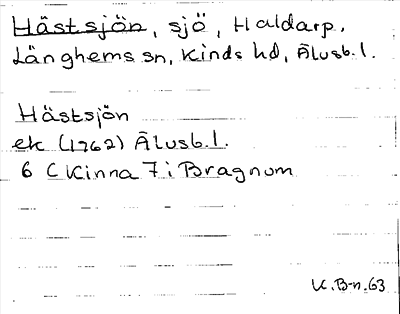 Hästsjön, sjö, Haldarp,
Länghems sn, Kinds hd, Älvsb. l.
Hästsjön
ek (1962) Älvsb. l.
6 C Kinna 7 i Bragnum
K. B-n. 63